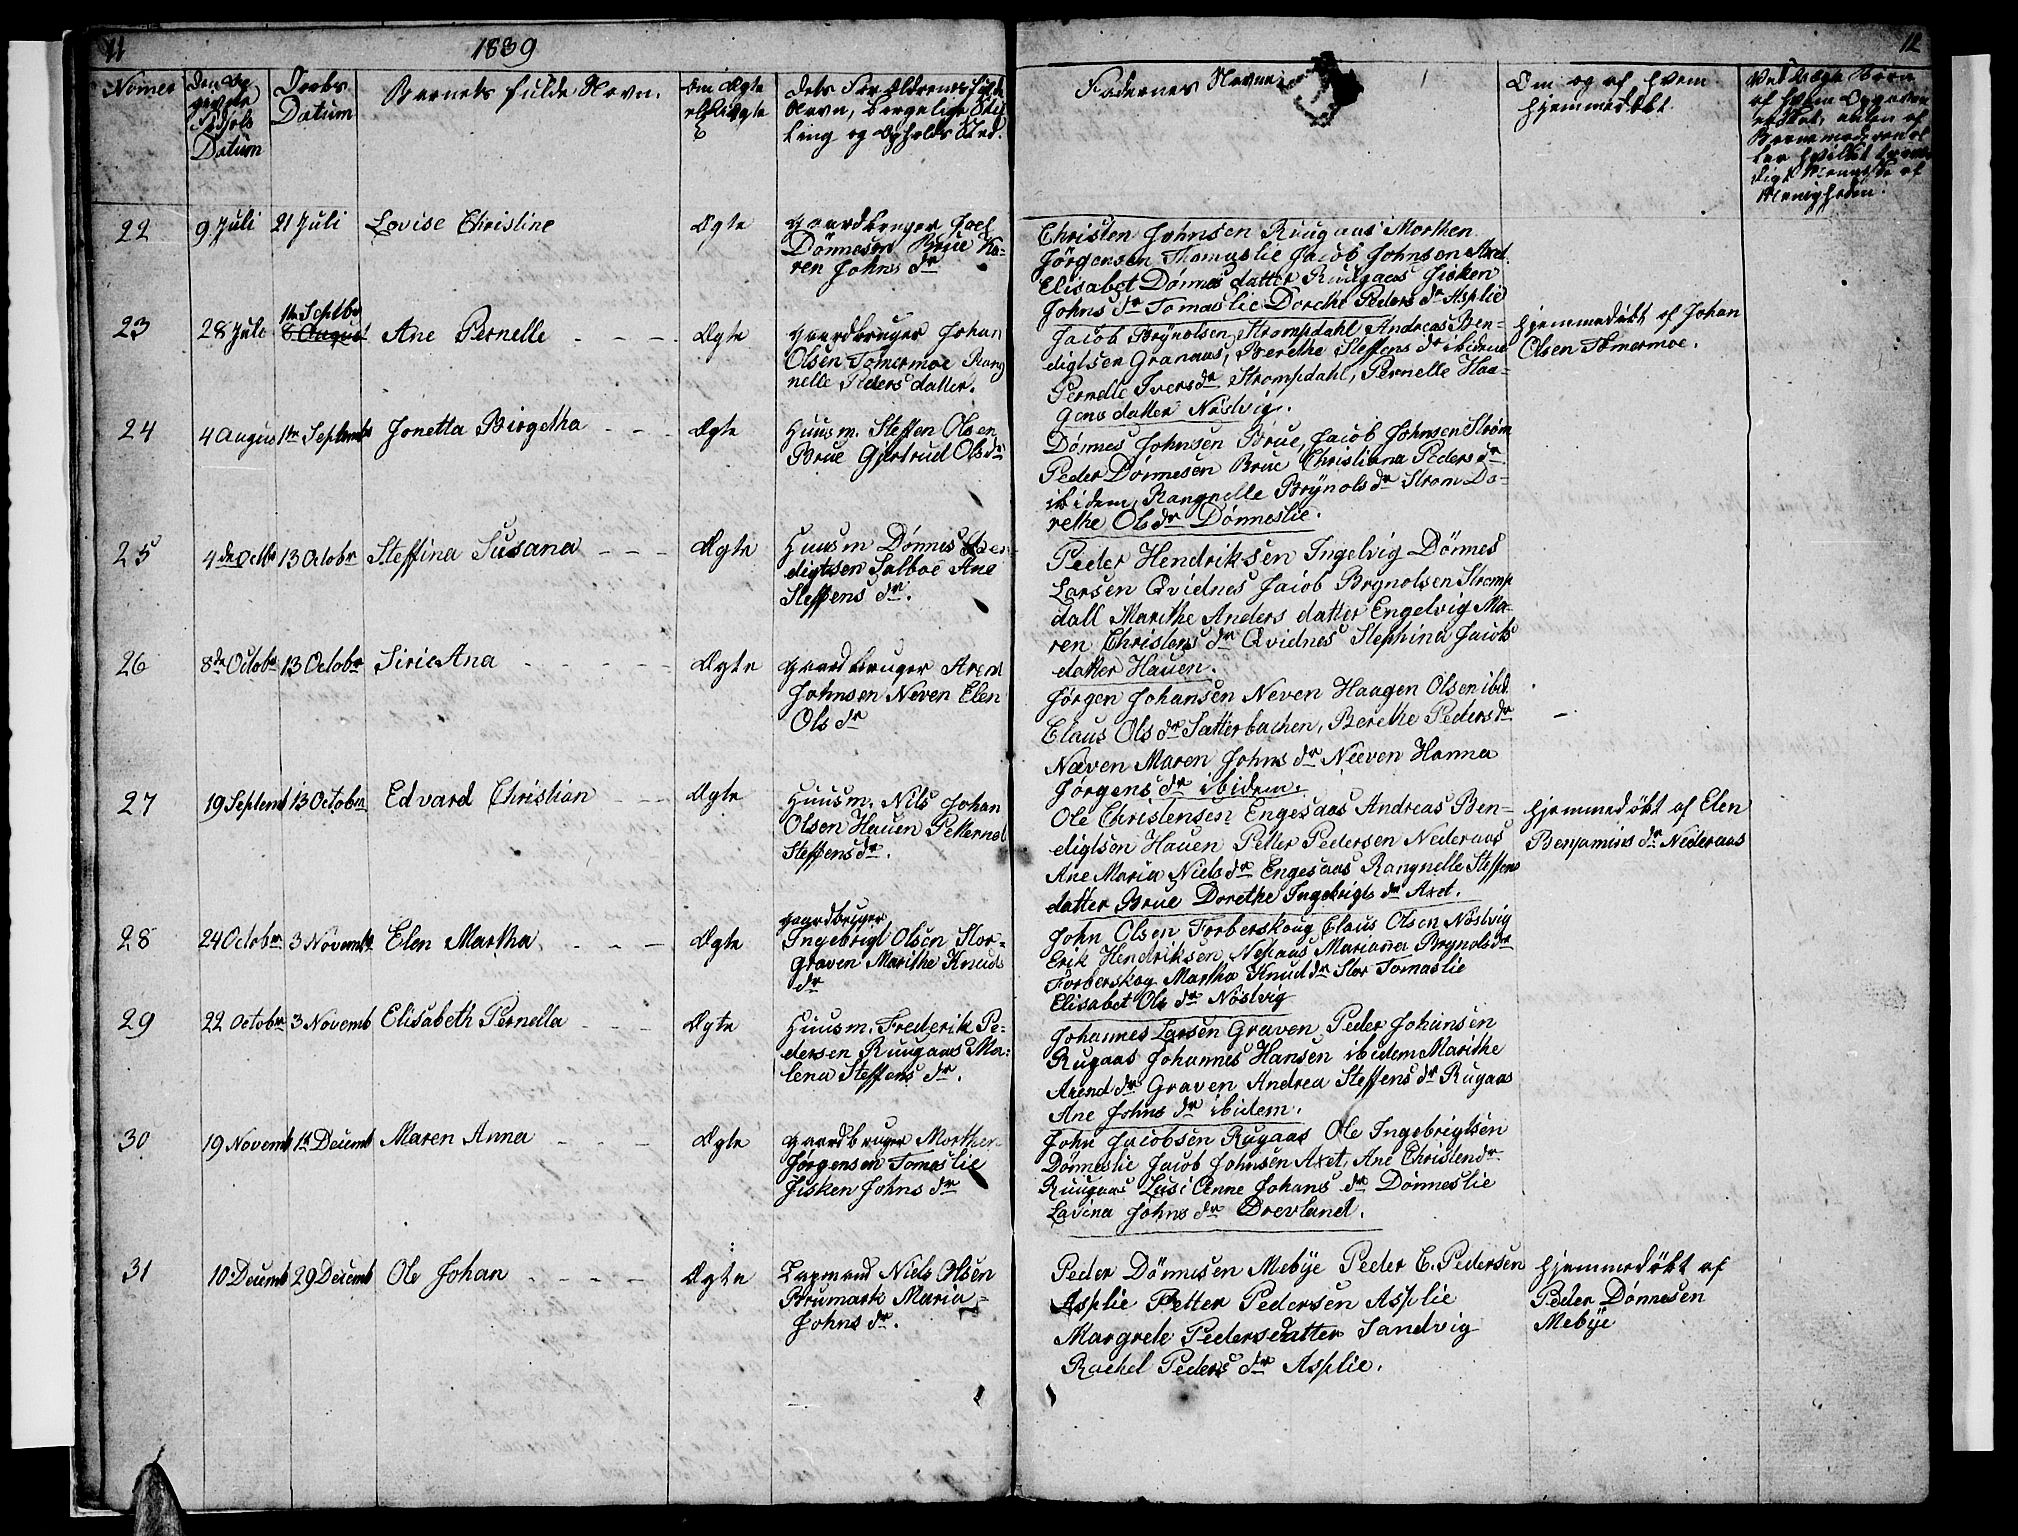 11
1839
12
Nomer
Datum
Daabs
Datum
Barnets fulde Navn.
Om Ægte
Navn, borgelige Stil
ling og Opholds Sted.
Fadernes Navne
Om og af hvem
hjemmedøbt
22
9 Juli
21 Juli
Lovise Christine
Ægte
Gaardbruger
Dönnesen Brue Ka-
ren Johns dr
Christen Johnsen Ruugaas Morthen
Jörgensen Thomaslie Jacob Johnsen Axet
Elisabet Dönnes datter Ruugaas Fisken
Johns dr Tomaslie Dorthe Peders dr Asplie
23
28 Juli
1te Septbr
8 August
Ane Pernelle
Ægte
Gaardbruger Johan
Olsen Tömermoe Rang
nelle Peders datter.
Jacob Brÿnolsen Strompdahl, Andreas Ben-
digtsen Granaas, Berethe Steffens dr ibidem
Pernelle Ivers dr Strompdahl, Pernelle Haa-
gens datter Nöstvig.
hjemmedöbt af Johan
Olsen Tömermoe.
24
4 August
1te Septembr
Jonetta Birgetha
Ægte
Huusm. Steffen Olsen
Brue Gjertrud Ols dr
Dönnes Johnsen Brue, Jacob Johnsen Ström
Peder Dönnesen Brue Christiana Peders dr
ibidem, Rangnelle Brÿnols dr Strom Do-
rethe Ols dr Dönneslie.
25
4de Octb
13 Octobr
Steffina Susana
Ægte
Huusm Dönnes Ben
digtsen Salboe Ane
Steffens dr.
Peder Hendriksen Ingelvig Dönnes
Larsen Qvidnes Jacob Brynolsen Stromp
dall Marithe Anders datter Engelvig Ma-
ren Christens dr Qvidnes Stephina Jacobs
datter Hauen.
26
8de Octobr
13 Octobr
Sirie Ana
Ægte
Gaardbruger Arent
Johnsen Neven Elen
Ols dr
Jørgen Johansen Neven Haagen Olsen ibid.
Claus Ols dr Sætterbachen, Berethe Peders dr
Næven Maren Johns dr Næven Hanna
Jørgens dr ibidem.
27
19 Septemb
13 October
Edvard Christian
Ægte
Huusm. Nils Johan
Olsen Hauen Petternel
Steffens dr.
Ole Christensen Engesaas Andreas Ben-
digtsen Hauen Petter Pedersen Nederaas
Ane Maria Niels dr Engesaas Rangnelle Steffens
datter Brue Dorethe Ingebrigts dr Axet.
hjemmedöbt af Elen
Benjamins dr Nederaas
28
24 Octobr
3 Novembr
Elen Martha
Ægte
Gaardbruger
Ingebrigt Olsen Stor-
graven Marithe Knuds
dr
John Olsen Forberskoug Claus Olsen Nöstvig
Erik Hendriksen Nesaas Mariana Brynols dr
Forberskog Martha Knud dr Stor Tomaslie
Elisabet Ols dr Nöstvig
29
22 Octobr
3 Novemb
Elisabeth Pernella
Ægte
Huusm. Frederik Pe-
dersen Ruugaas Ma-
lena Steffens dr.
Johannes Larsen Graven Peder Johansen
Rugaas Johannes Hansen ibidem Marithe
Arend dr Graven Andrea Steffens dr Rugaas
Ane Johns dr ibidem.
30
19 Novemb
1te Decemb
Maren Anna
Ægte
Gaardbruger Morthen
Jörgensen Tomaslie
Fisken Johns dr
John Jacobsen Rugaas Ole Ingebrigtsen
Dönneslie Jacob Johnsen Axet, Ane Christen dr
Ruugaas Lusi Anne Johans dr Dönneslie
Lavina Johns dr Drevland.
31
10 Decemb
29 Decemb
Ole Johan
Ægte
Lapmand Niels Olsen
Brumark Maria
Johns dr.
Peder Dönnesen Mebÿe Peder C. Pedersen
Asplie Petter Pedersen Asplie
Margrete Pedersdatter Sandvig
Rachel Peders dr Asplie.
hjemmedöbt af
Peder Dönnesen
Mebÿe